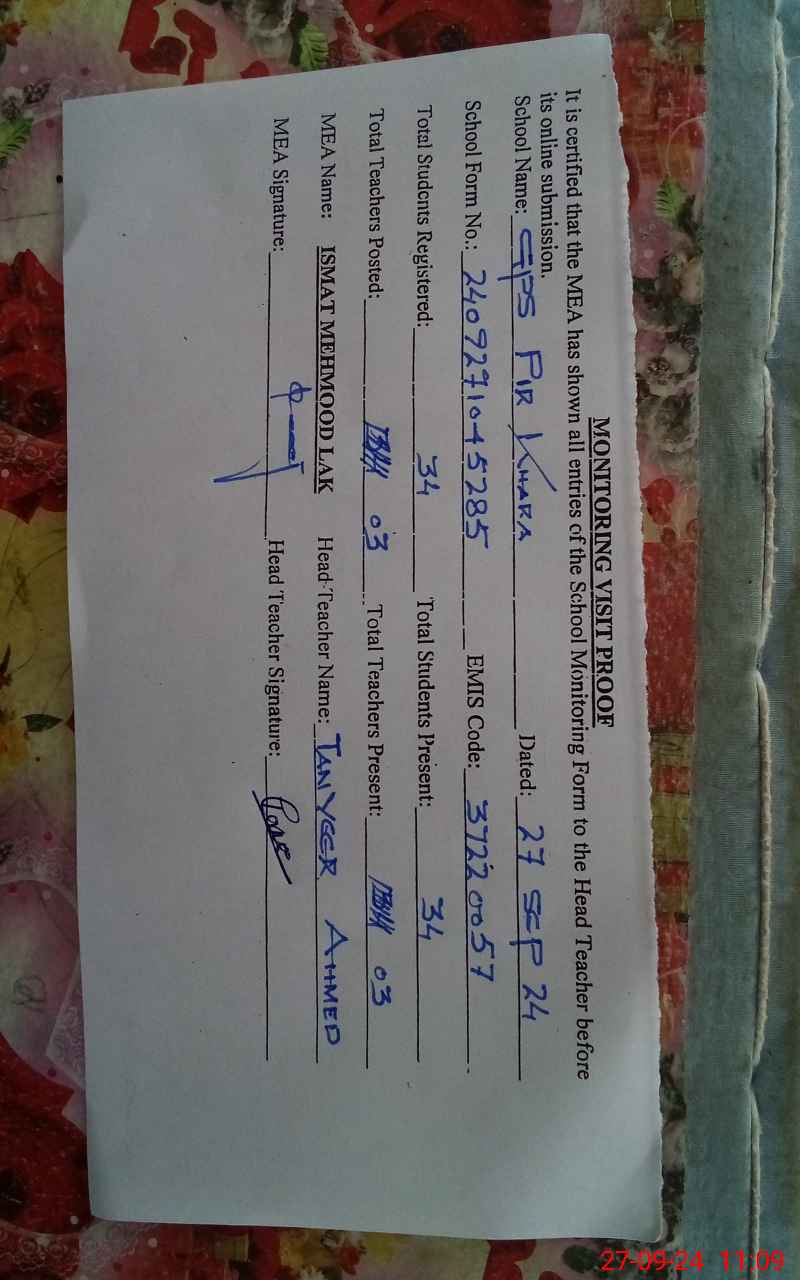 MONITORING VISIT PROOF
It is certified that the MEA has shown all entries of the School Monitoring Form to the Head Teacher before
its online submission.
School Name: GPS PIR KHARA Dated: 27 SEP 24
School Form No.: 2409271045285 EMIS Code: 37220057
Total Students Registered: 34 Total Students Present: 34
Total Teachers Posted: 03 Total Teachers Present: 03
MEA Name: ISMAT MEHMOOD LAK Head Teacher Name: TANVEER AHMED
MEA Signature: Head Teacher Signature:
27-09-24 11:09